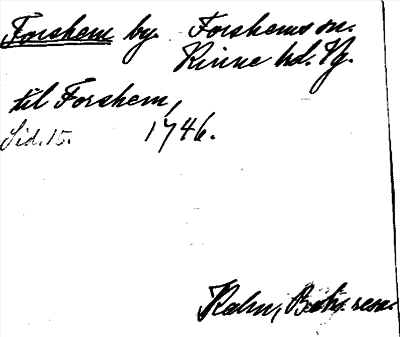 Forshem by. Forshems sn.
Kinne hd. Vg.
til Forshem,
Sid. 15. 1746.
Kalm, Boh. resa.